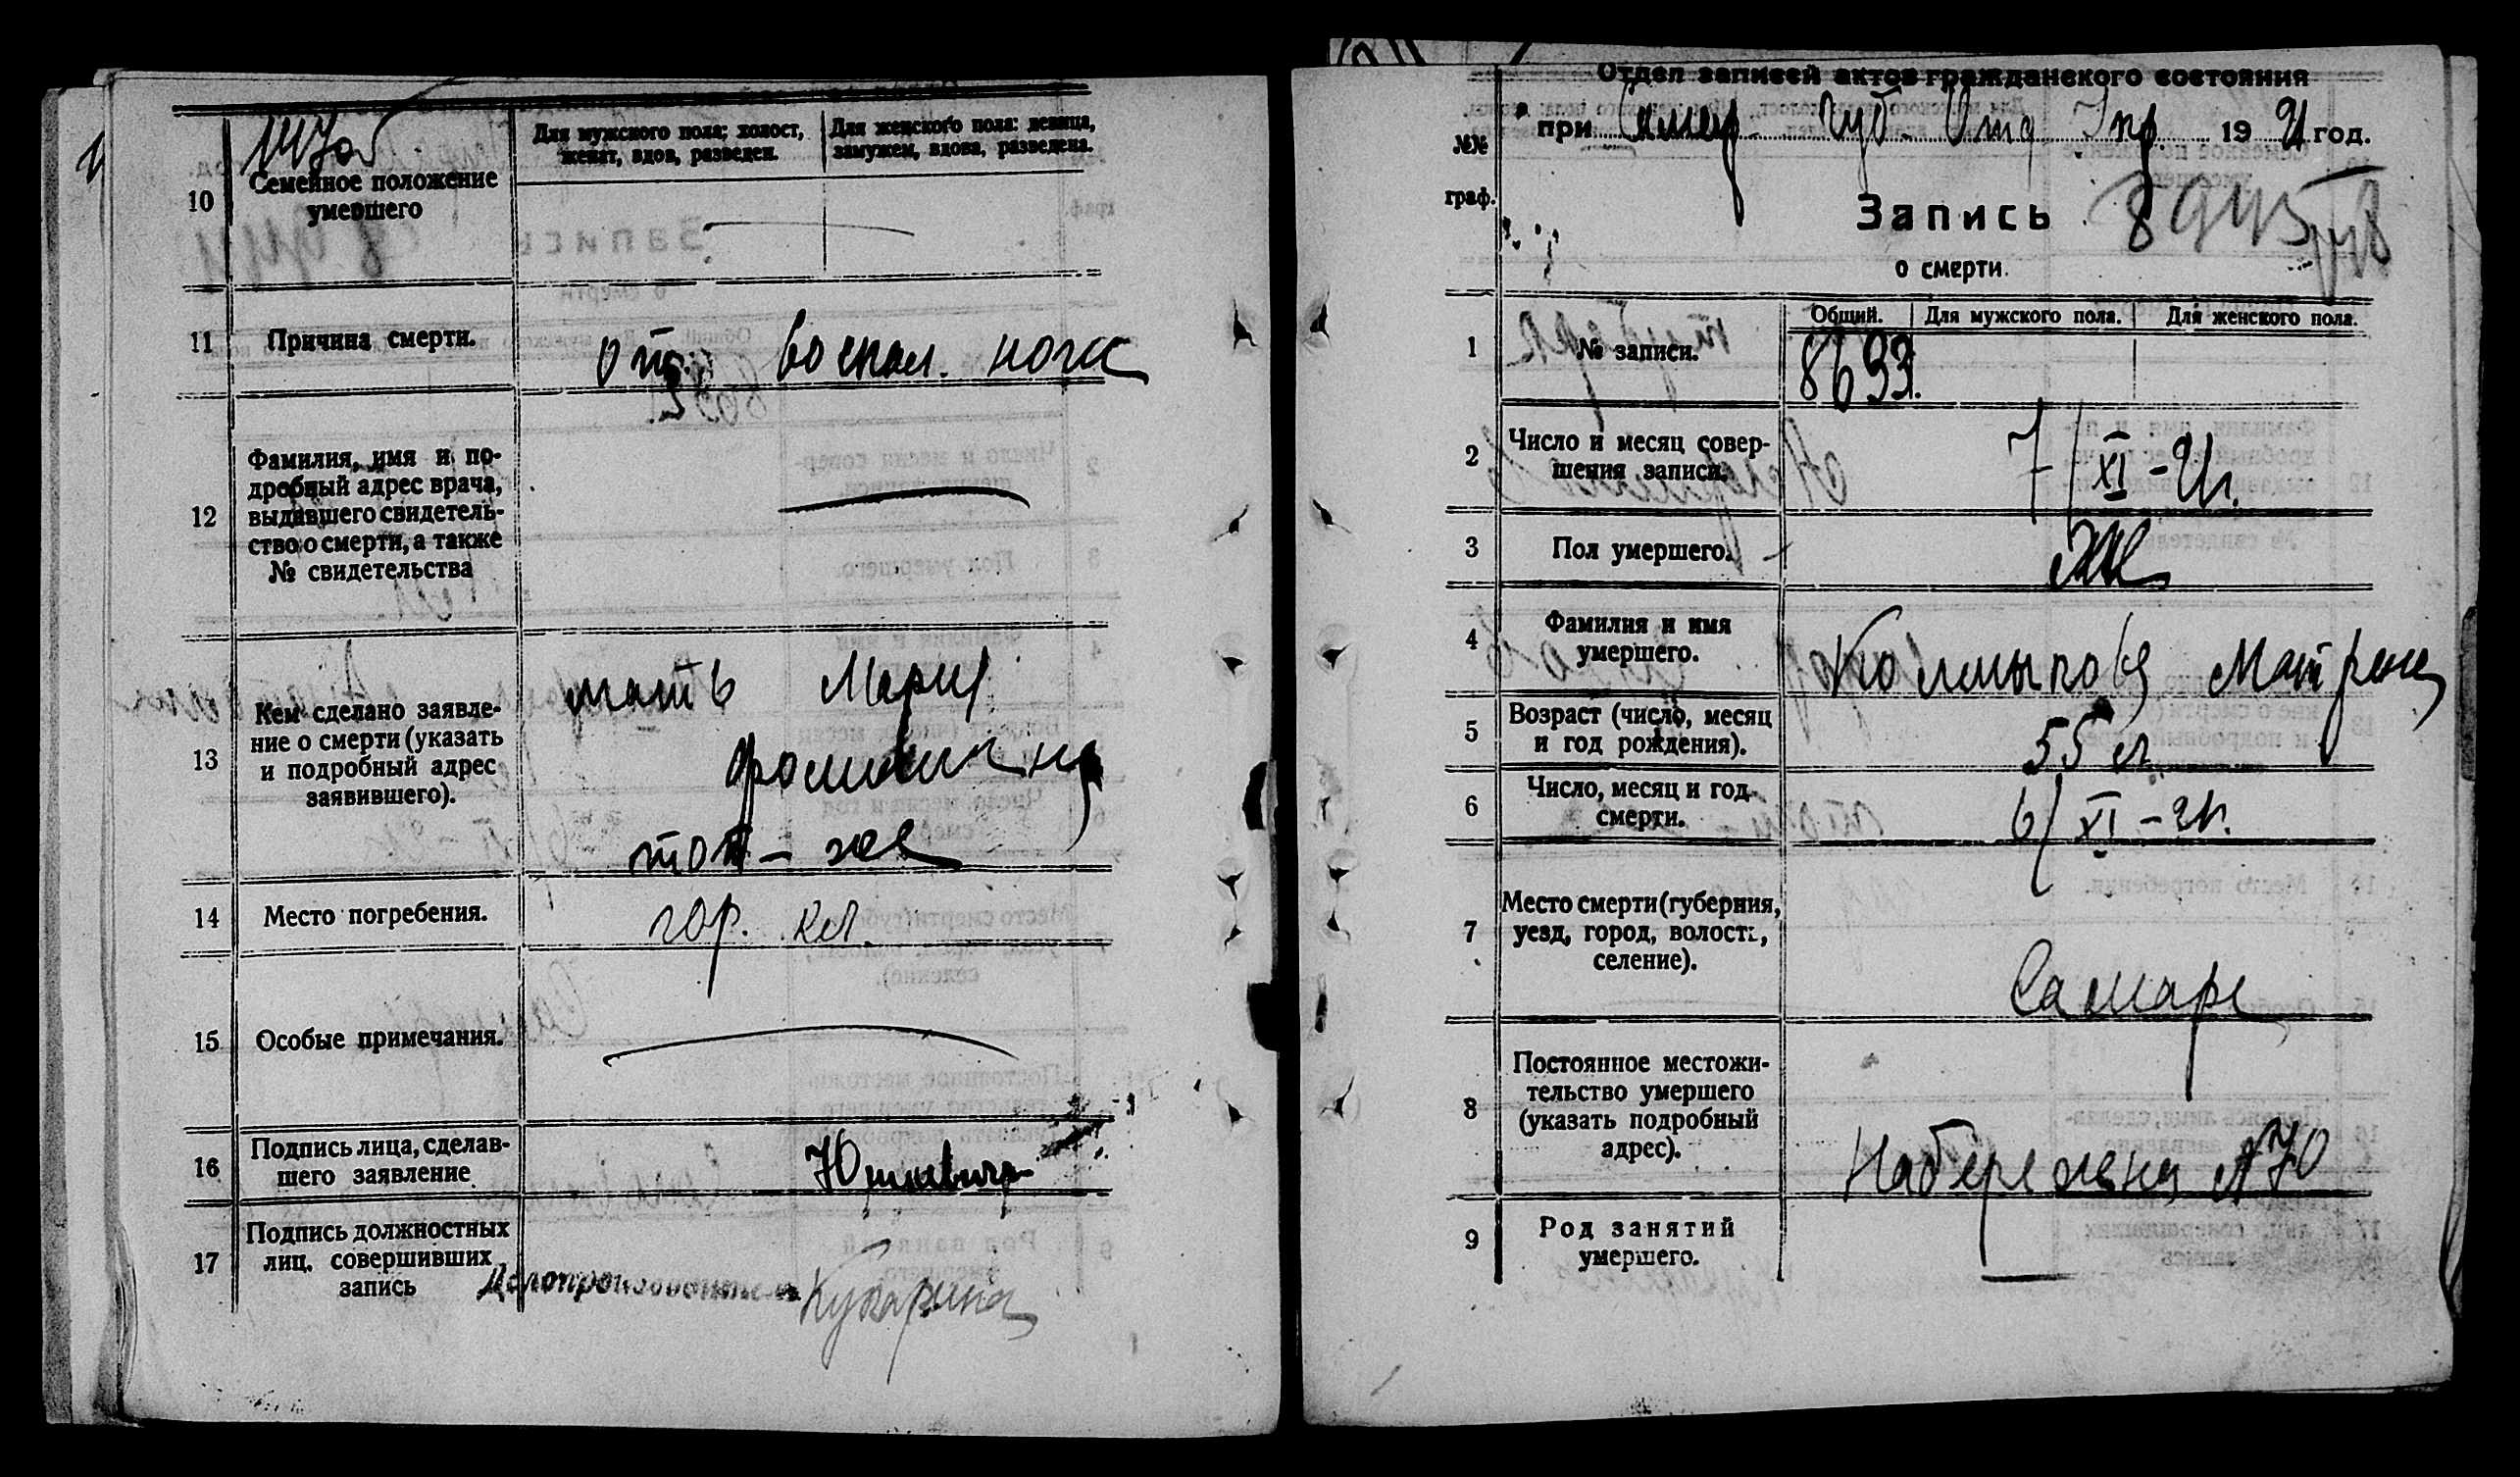 10
Семейное положение
умершего
Для мужского пола; холост,
женат, вдов, разведен.
Для женского пола: девица,
замужем, вдова, разведена.
11
Причина смерти.
от воспал.
12
Фамилия, имя и по-
дробный адрес врача,
выдавшего свидетель-
ство о смерти, а также
№ свидетельства
13
Кем сделано заявле-
ние о смерти (указать
и подробный адрес
заявившего).
мать Мария
то - же
14
Место погребения.
гор. кл.
15
Особые примечания.
16
Подпись лица, сделав-
шего заявление
17
Подпись должностных
лиц, совершивших
запись
Делопроизводитель
Отдел записей актов гражданского состояния
№№
граф.
при Губ. Отд Упр 1921 год.
Запись
о смерти.
1
№ записи.
Общий.
Для мужского пола.
Для женского пола.
8693.
2
Число и месяц совер-
шения записи.
7/XI-21г.
3
Пол умершего.
Ж
4
Фамилия и имя
умершего.
Колмыкова Матрена
5
Возраст (число, месяц
и год рождения).
55 л
6
Число, месяц и год
смерти.
6/XI-21г.
7
Место смерти (губерния,
уезд, город, волость,
селение).
Самара
8
Постоянное местожи-
тельство умершего
(указать подробный
адрес).
Набережная №70
9
Род занятий
умершего.